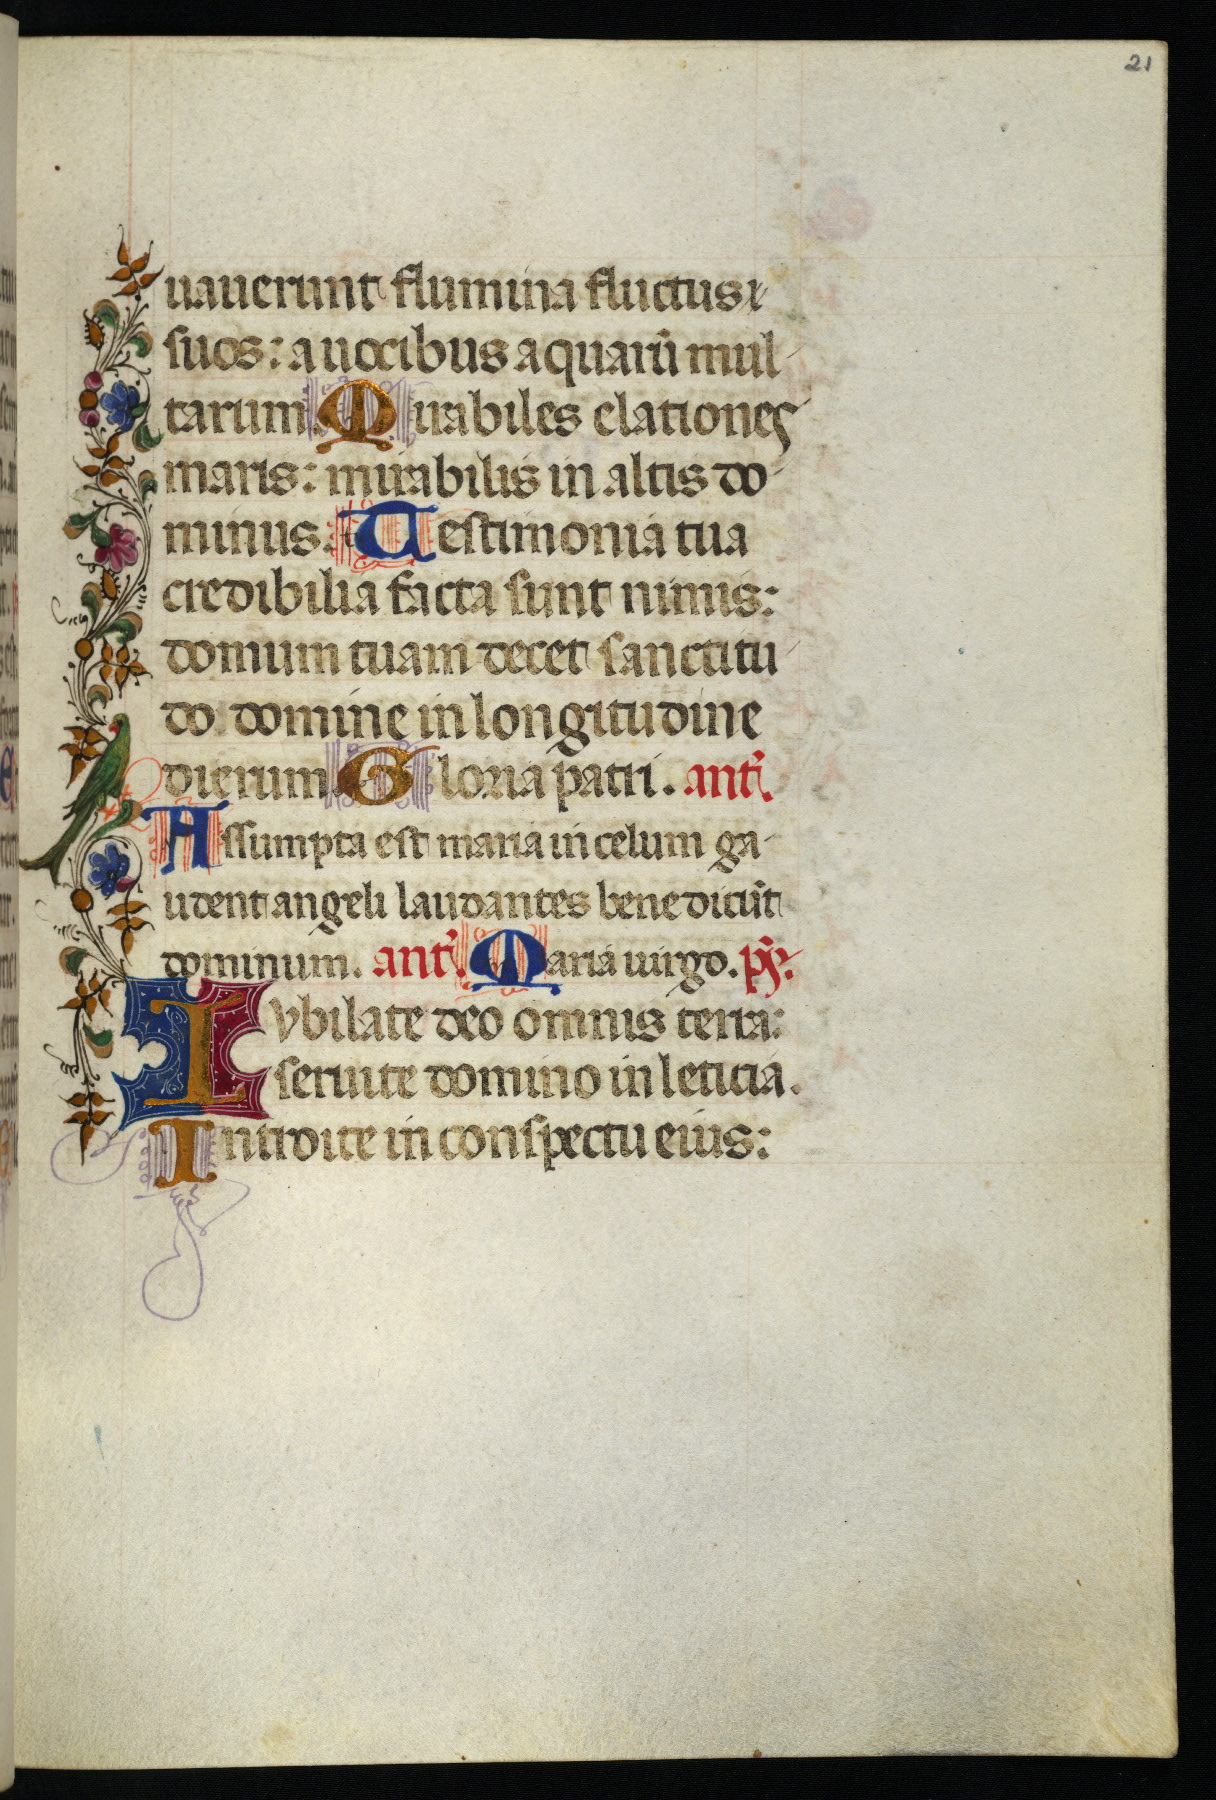 21
uauerunt flumina fluctus
suos: a uocibus aquarū mul-
tarum. Mirabiles elationes
maris: mirabilis in altis do-
minus. Testimonia tua
credibilia facta sunt nimis:
domum tuam decet sanctitu-
do domine in longitudine
dierum. Gloria patri. ant̃.
Assumpta est maria in celum ga-
udent angeli laudantes benedicūt
dominum. ant̃. Maria uirgo. ps̃.
Iubilate deo omnis terra:
seruite domino in leticia.
Introite in conspectu eius: